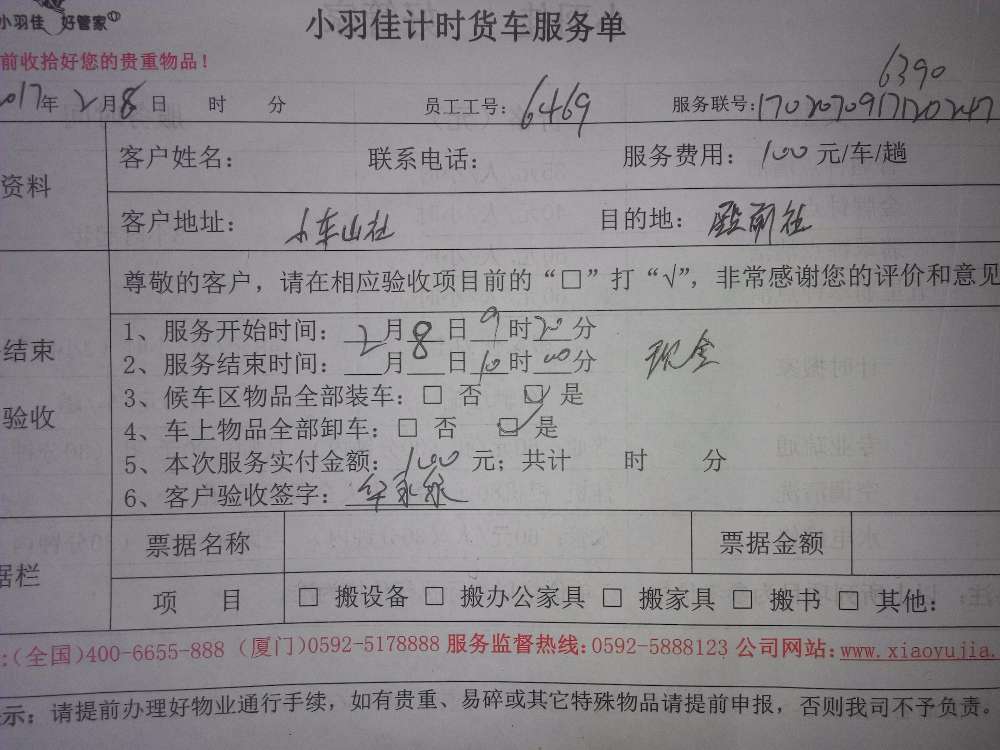 小羽佳 好管家
小羽佳计时货车服务单
前收拾好您的贵重物品！
6390
2017年2月8日 时 分 员工工号：6469 服务联号：170207091712024 7
资料 客户姓名： 联系电话： 服务费用：100元/车/趟
客户地址：小车山社 目的地：殿前社
尊敬的客户，请在相应验收项目前的“□”打“√”，非常感谢您的评价和意见
结束
验收
1、服务开始时间：2月8日9时20分
2、服务结束时间：月日10时00分
现金
3、候车区物品全部装车：□ 否 ☑ 是
4、车上物品全部卸车：□ 否 ☑ 是
5、本次服务实付金额：100元；共计 时 分
6、客户验收签字：
据栏 票据名称 票据金额
项 目 □ 搬设备 □ 搬办公家具 □ 搬家具 □ 搬书 □ 其他：
:(全国)400-6655-888 (厦门)0592-5178888 服务监督热线:0592-5888123 公司网站:www.xiaoyujia.
示：请提前办理好物业通行手续，如有贵重、易碎或其它特殊物品请提前申报，否则我司不予负责。